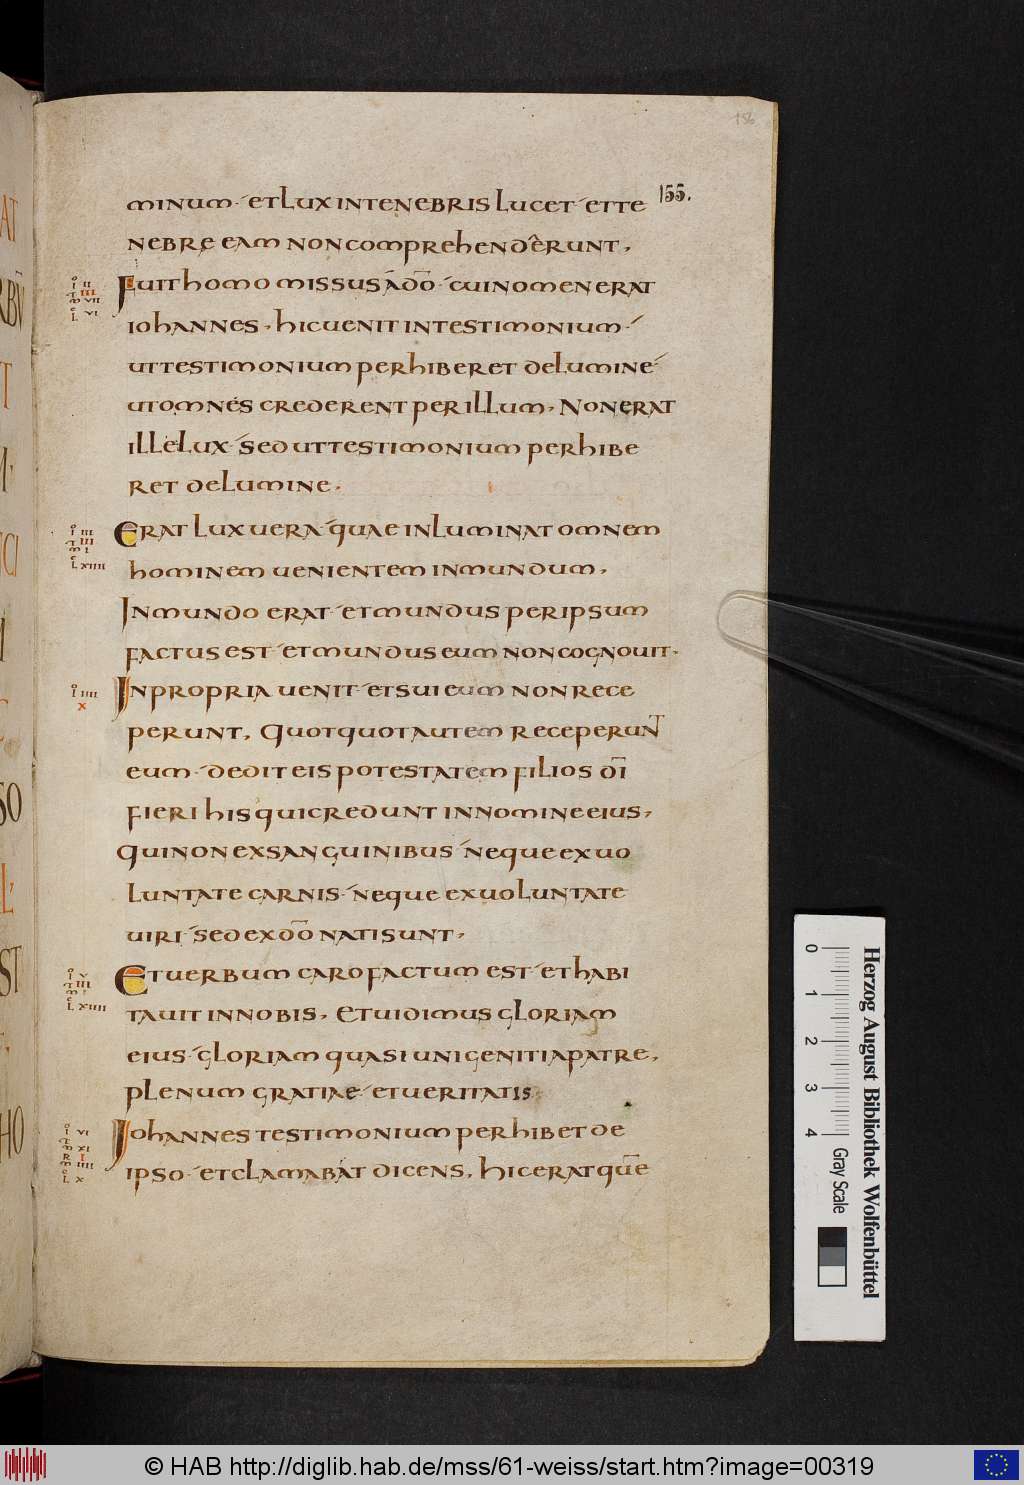 156
155.
minum· et lux in tenebris lucet· et te
nebrę eam non comprehenderunt,
Fuit homo missus a dō· cui nomen erat
iohannes, hic uenit in testimonium·
ut testimonium perhiberet de lumine
ut omnes crederent per illum, Non erat
ille lux· sed ut testimonium perhibe
ret de lumine,
Erat lux uera· quae inluminat omnem
hominem uenientem in mundum,
In mundo erat· et mundus per ipsum
factus est· et mundus eum non cognouit·
In propria uenit· et sui eum non rece
perunt, Quotquot autem receperunt
eum· dedit eis potestatem filios dī
fieri his qui credunt in nomine eius,
Qui non ex sanguinibus· neque ex uo
luntate carnis· neque ex uoluntate
uiri· sed ex dō nati sunt,
Et uerbum caro factum est· et habi
tauit in nobis, Et uidimus gloriam
eius· gloriam quasi unigeniti a patre,
plenum gratiae· et ueritatis
Iohannes testimonium perhibet de
ipso· et clamabat dicens, hic erat quē
0 1 2 3 4
Herzog August Bibliothek Wolfenbüttel
Gray Scale
© HAB http://diglib.hab.de/mss/61-weiss/start.htm?image=00319